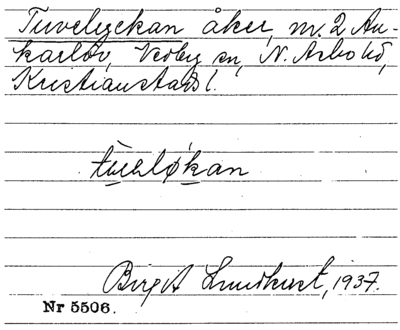 Tuvelyckan åker, m. 2 An-
karlöv, Vedby sn, N. Åsbo hd,
Kristianstads l.
tuvəløkan
Birgit Lundkvist, 1937.
Nr 5506.